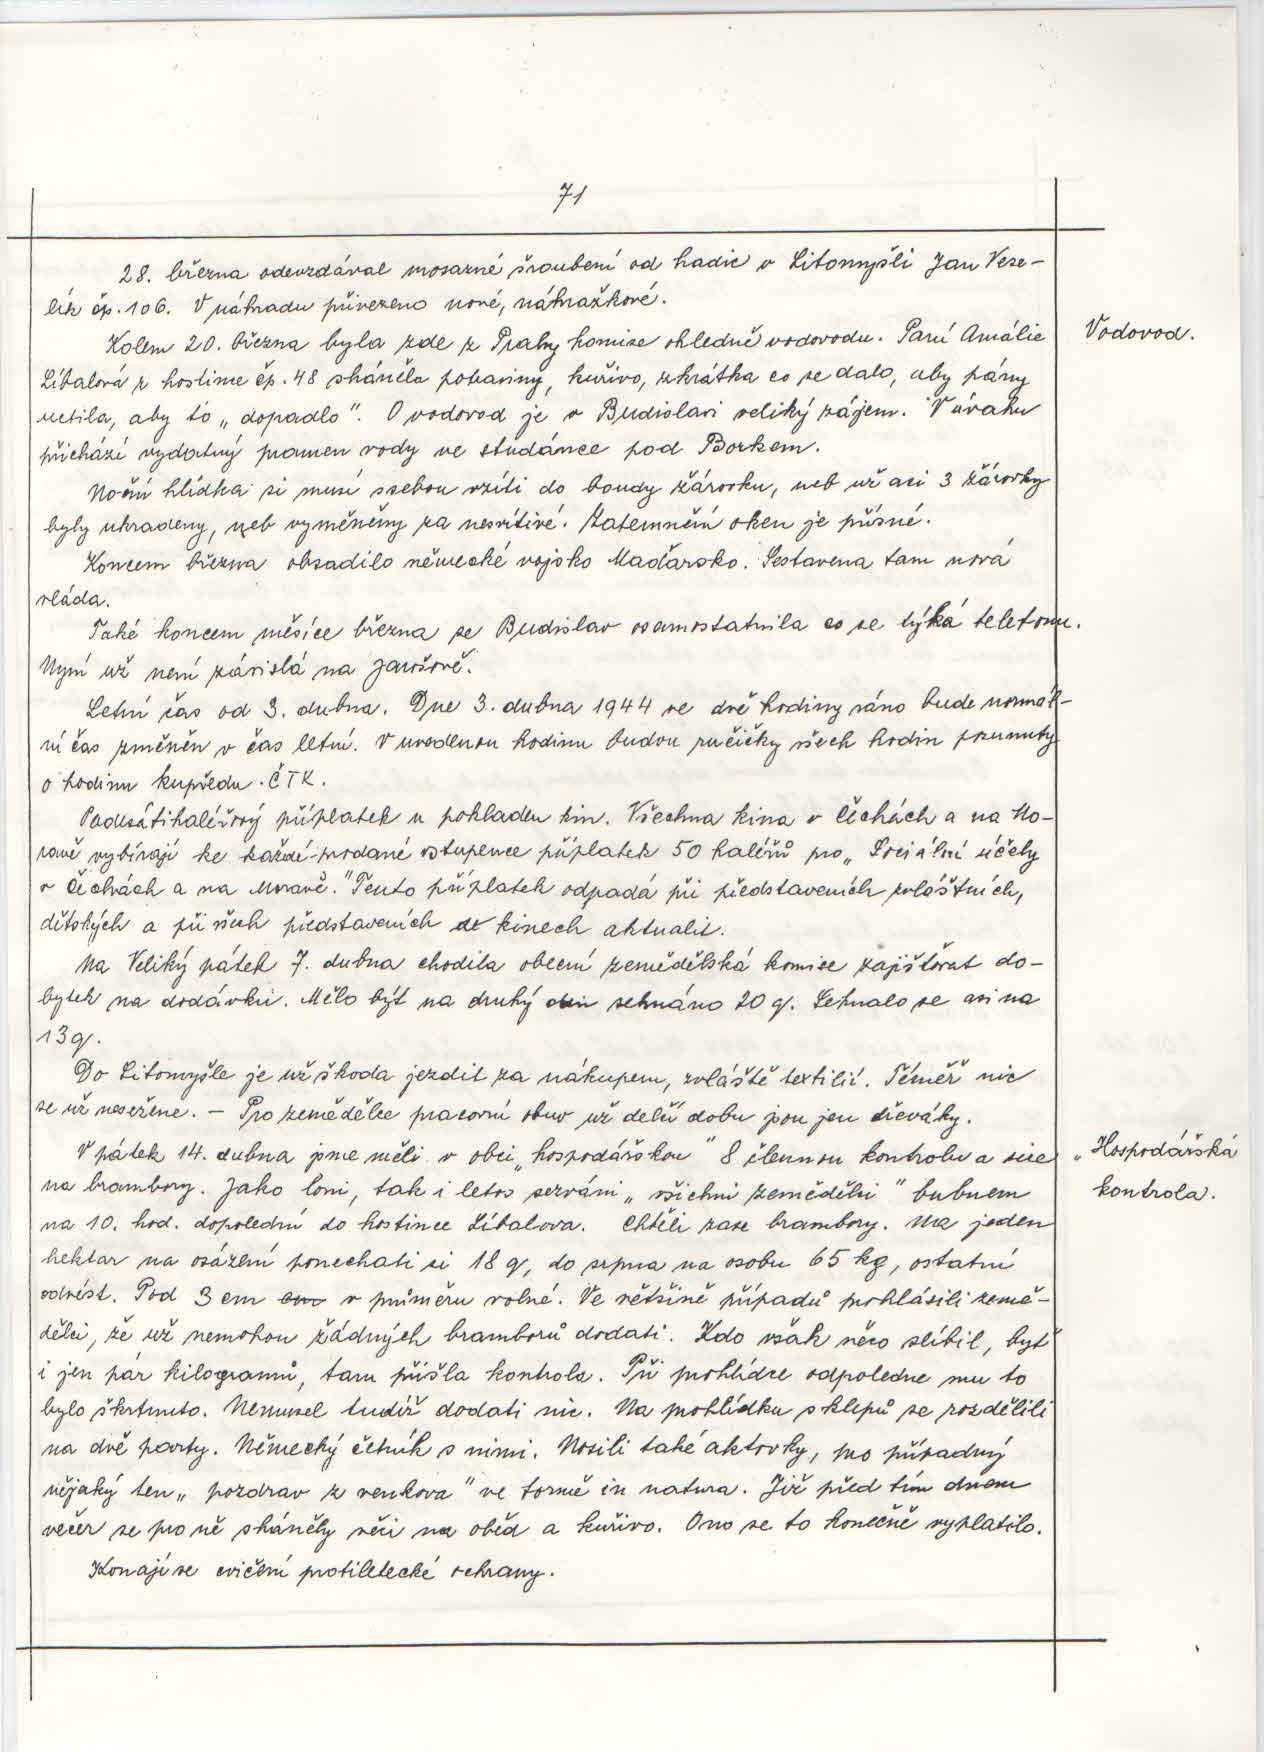 71
28. března odevzdával mosazné šroubení od hadic v Litomyšli Jan Vese-
lík čp. 106. V náhradu přivezeno nové, náhražkové.
Kolem 20. března byla zde z Prahy komise ohledně vodovodu. Paní Amálie
Vodovod.
Líbalová z hostince čp. 48 sháněla potraviny, kuřivo, zkrátka co se dalo, aby pány
uctila, aby to „dopadlo". O vodovod je v Budislavi veliký zájem. V úvahu
přichází vydatný pramen vody ve studánce pod Borkem.
Noční hlídka si musí ssebou vzíti do boudy žárovku, neb už asi 3 žárovky
byly ukradeny, neb vyměněny za nesvítivé. Zatemnění oken je přísné.
Koncem března obsadilo německé vojsko Maďarsko. Sestavena tam nová
vláda.
Také koncem měsíce března se Budislav osamostatnila co se týká telefonu.
Nyní už není závislá na Jarošově.
Letní čas od 3. dubna. Dne 3. dubna 1944 ve dvě hodiny ráno bude normál-
ní čas změněn v čas letní. V uvedenou hodinu budou ručičky všech hodin posunuty
o hodinu kupředu. ČTK.
Padesátihaléřový příplatek u pokladen kin. Všechna kina v Čechách a na Mo-
ravě vybírají ke každé prodané vstupence příplatek 50 haléřů pro „Sociální účely
v Čechách a na Moravě." Tento příplatek odpadá při představeních zvláštních,
dětských a při všech představeních ve kinech aktualit.
Na Veliký pátek 7. dubna chodila obecní zemědělská komise zajišťovat do-
bytek na dodávku. Mělo být na druhý den sehnáno 20 q. Sehnalo se asi na
13 q.
Do Litomyšle je už škoda jezdit za nákupem, zvláště textilií. Téměř nic
se už nesežene. - Pro zemědělce pracovní obuv už delší dobu jsou jen dřeváky.
V pátek 14. dubna jsme měli v obci „hospodářskou" 8 člennou kontrolu a sice
„Hospodářská
na brambory. Jako loni, tak i letos sezváni „všichni zemědělci" bubnem
kontrola.
na 10. hod. dopolední do hostince Líbalova. Chtěli zase brambory. Na jeden
hektar na osázení ponechati si 18 q, do srpna na osobu 65 kg, ostatní
odvést. Pod 3 cm cm v průměru volné. Ve většině případů prohlásili země-
dělci, že už nemohou žádných bramborů dodati. Kdo však něco slíbil, byť
i jen pár kilogramů, tam přišla kontrola. Při prohlídce odpoledne mu to
bylo škrtnuto. Nemusel tudíž dodati nic. Na prohlídku sklepů se rozdělili
na dvě party. Německý četník s nimi. Nosili také aktovky, pro případný
nějaký ten „pozdrav z venkova" ve formě in natura. Již před tím dnem
večer se pro ně sháněly věci na oběd a kuřivo. Ono se to konečně vyplatilo.
Konají se cvičení protiletecké ochrany.